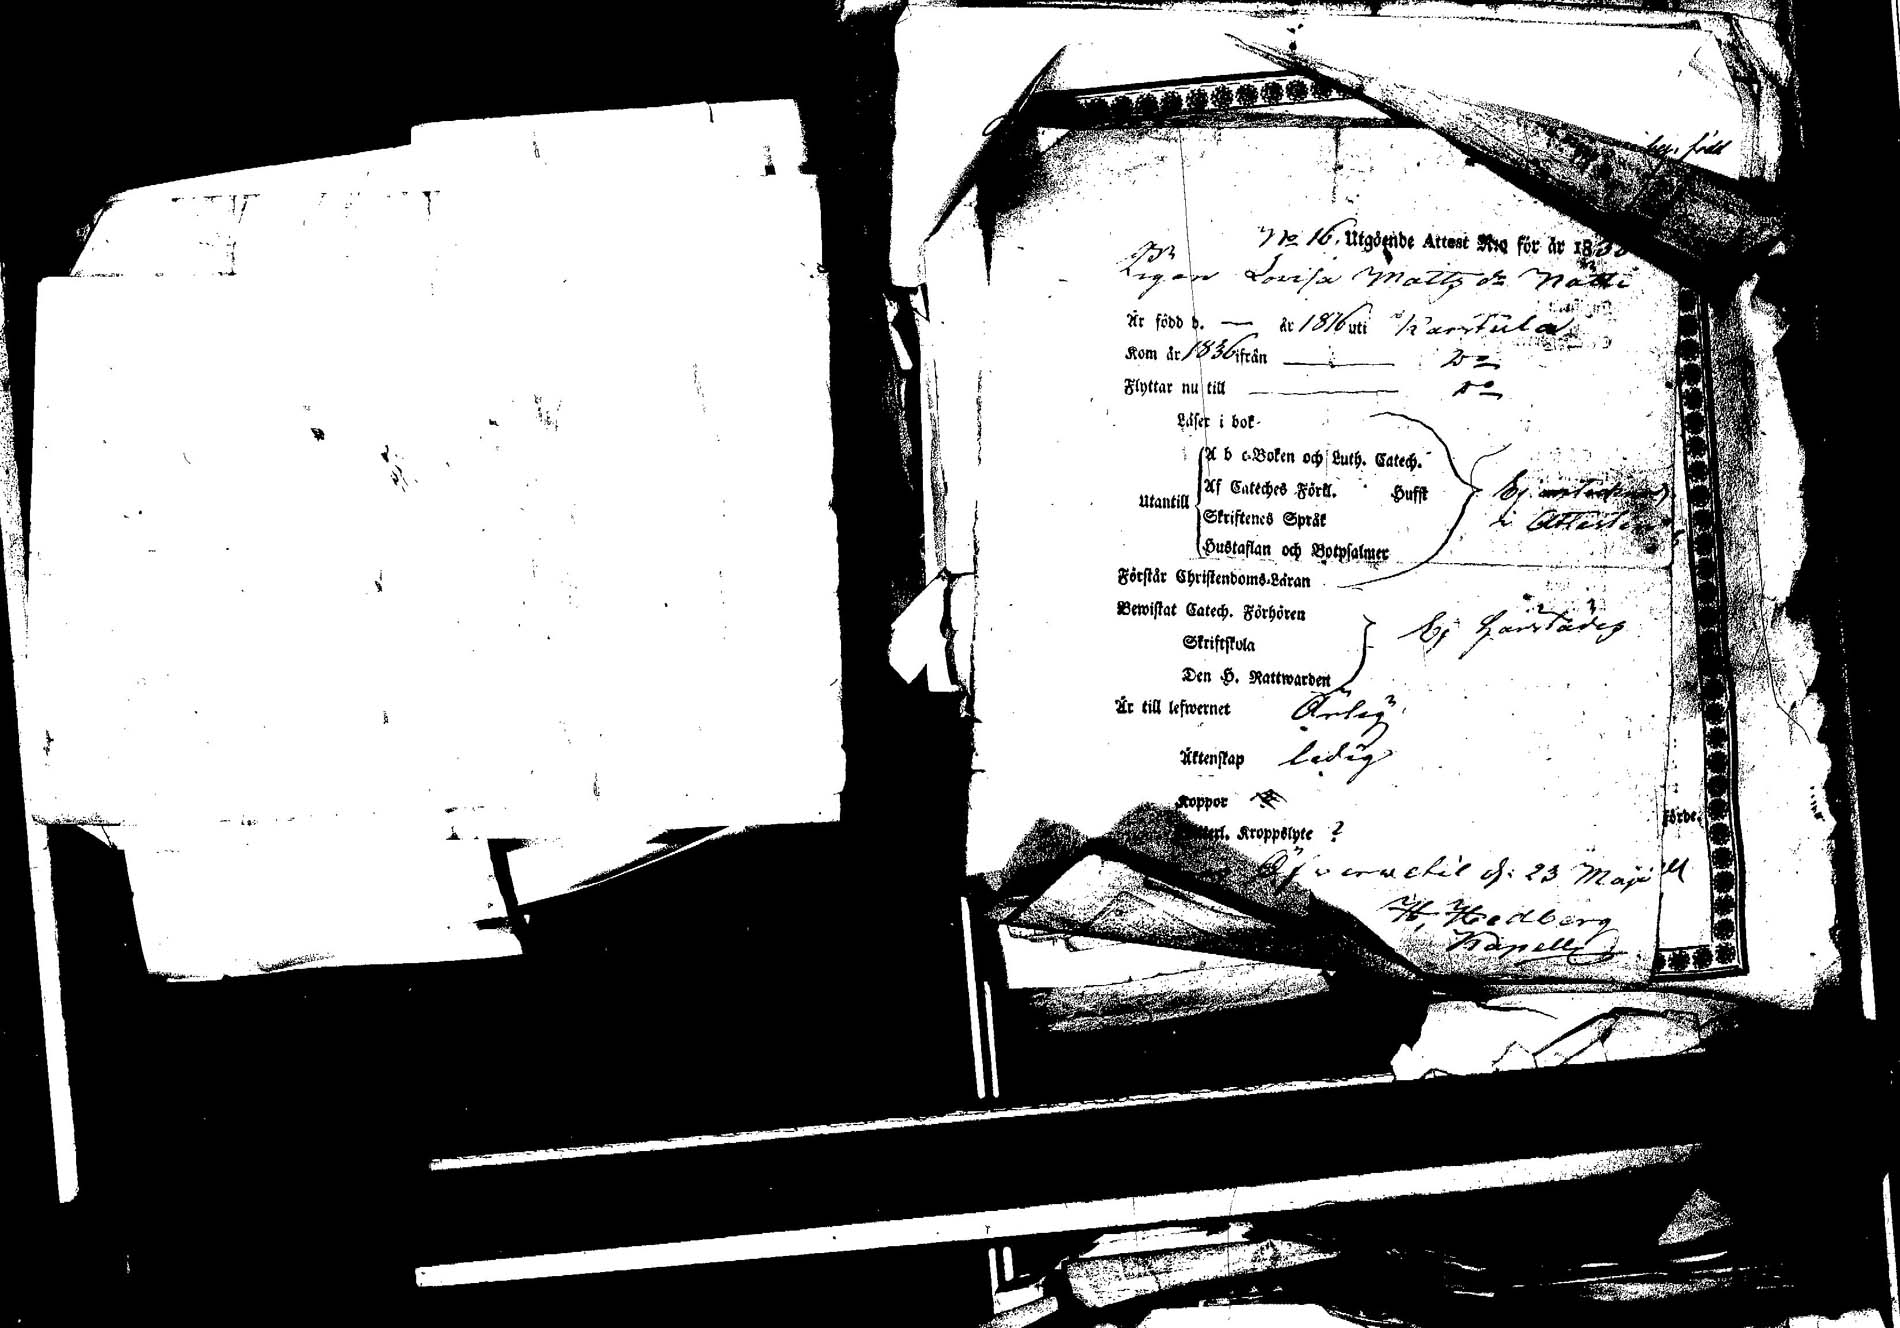 No 16. Utgående Attest N:o för år 18
Pigan Lovisa Matts dr
Är född d. — år 1816 uti Karstula
Kom år 1836 ifrån — Do
Flyttar nu till — Do
Läser i bok
A b c-Boken och Luth. Catech.
Af Cateches Förkl. Husfl
Utantill
Skriftenes Språk
Hustaflan och Botpsalmer
Ej antecknadt
i Attesten
Förstår Christendoms-Läran
Bewistat Catech. Förhören
Ej härstädes
Skriftskola
Den H. Nattwarden
Är till lefwernet Ärlig
Äktenskap ledig
Koppor
Kroppslyte ?
d: 23 Maji
H. Hedberg
Kapell